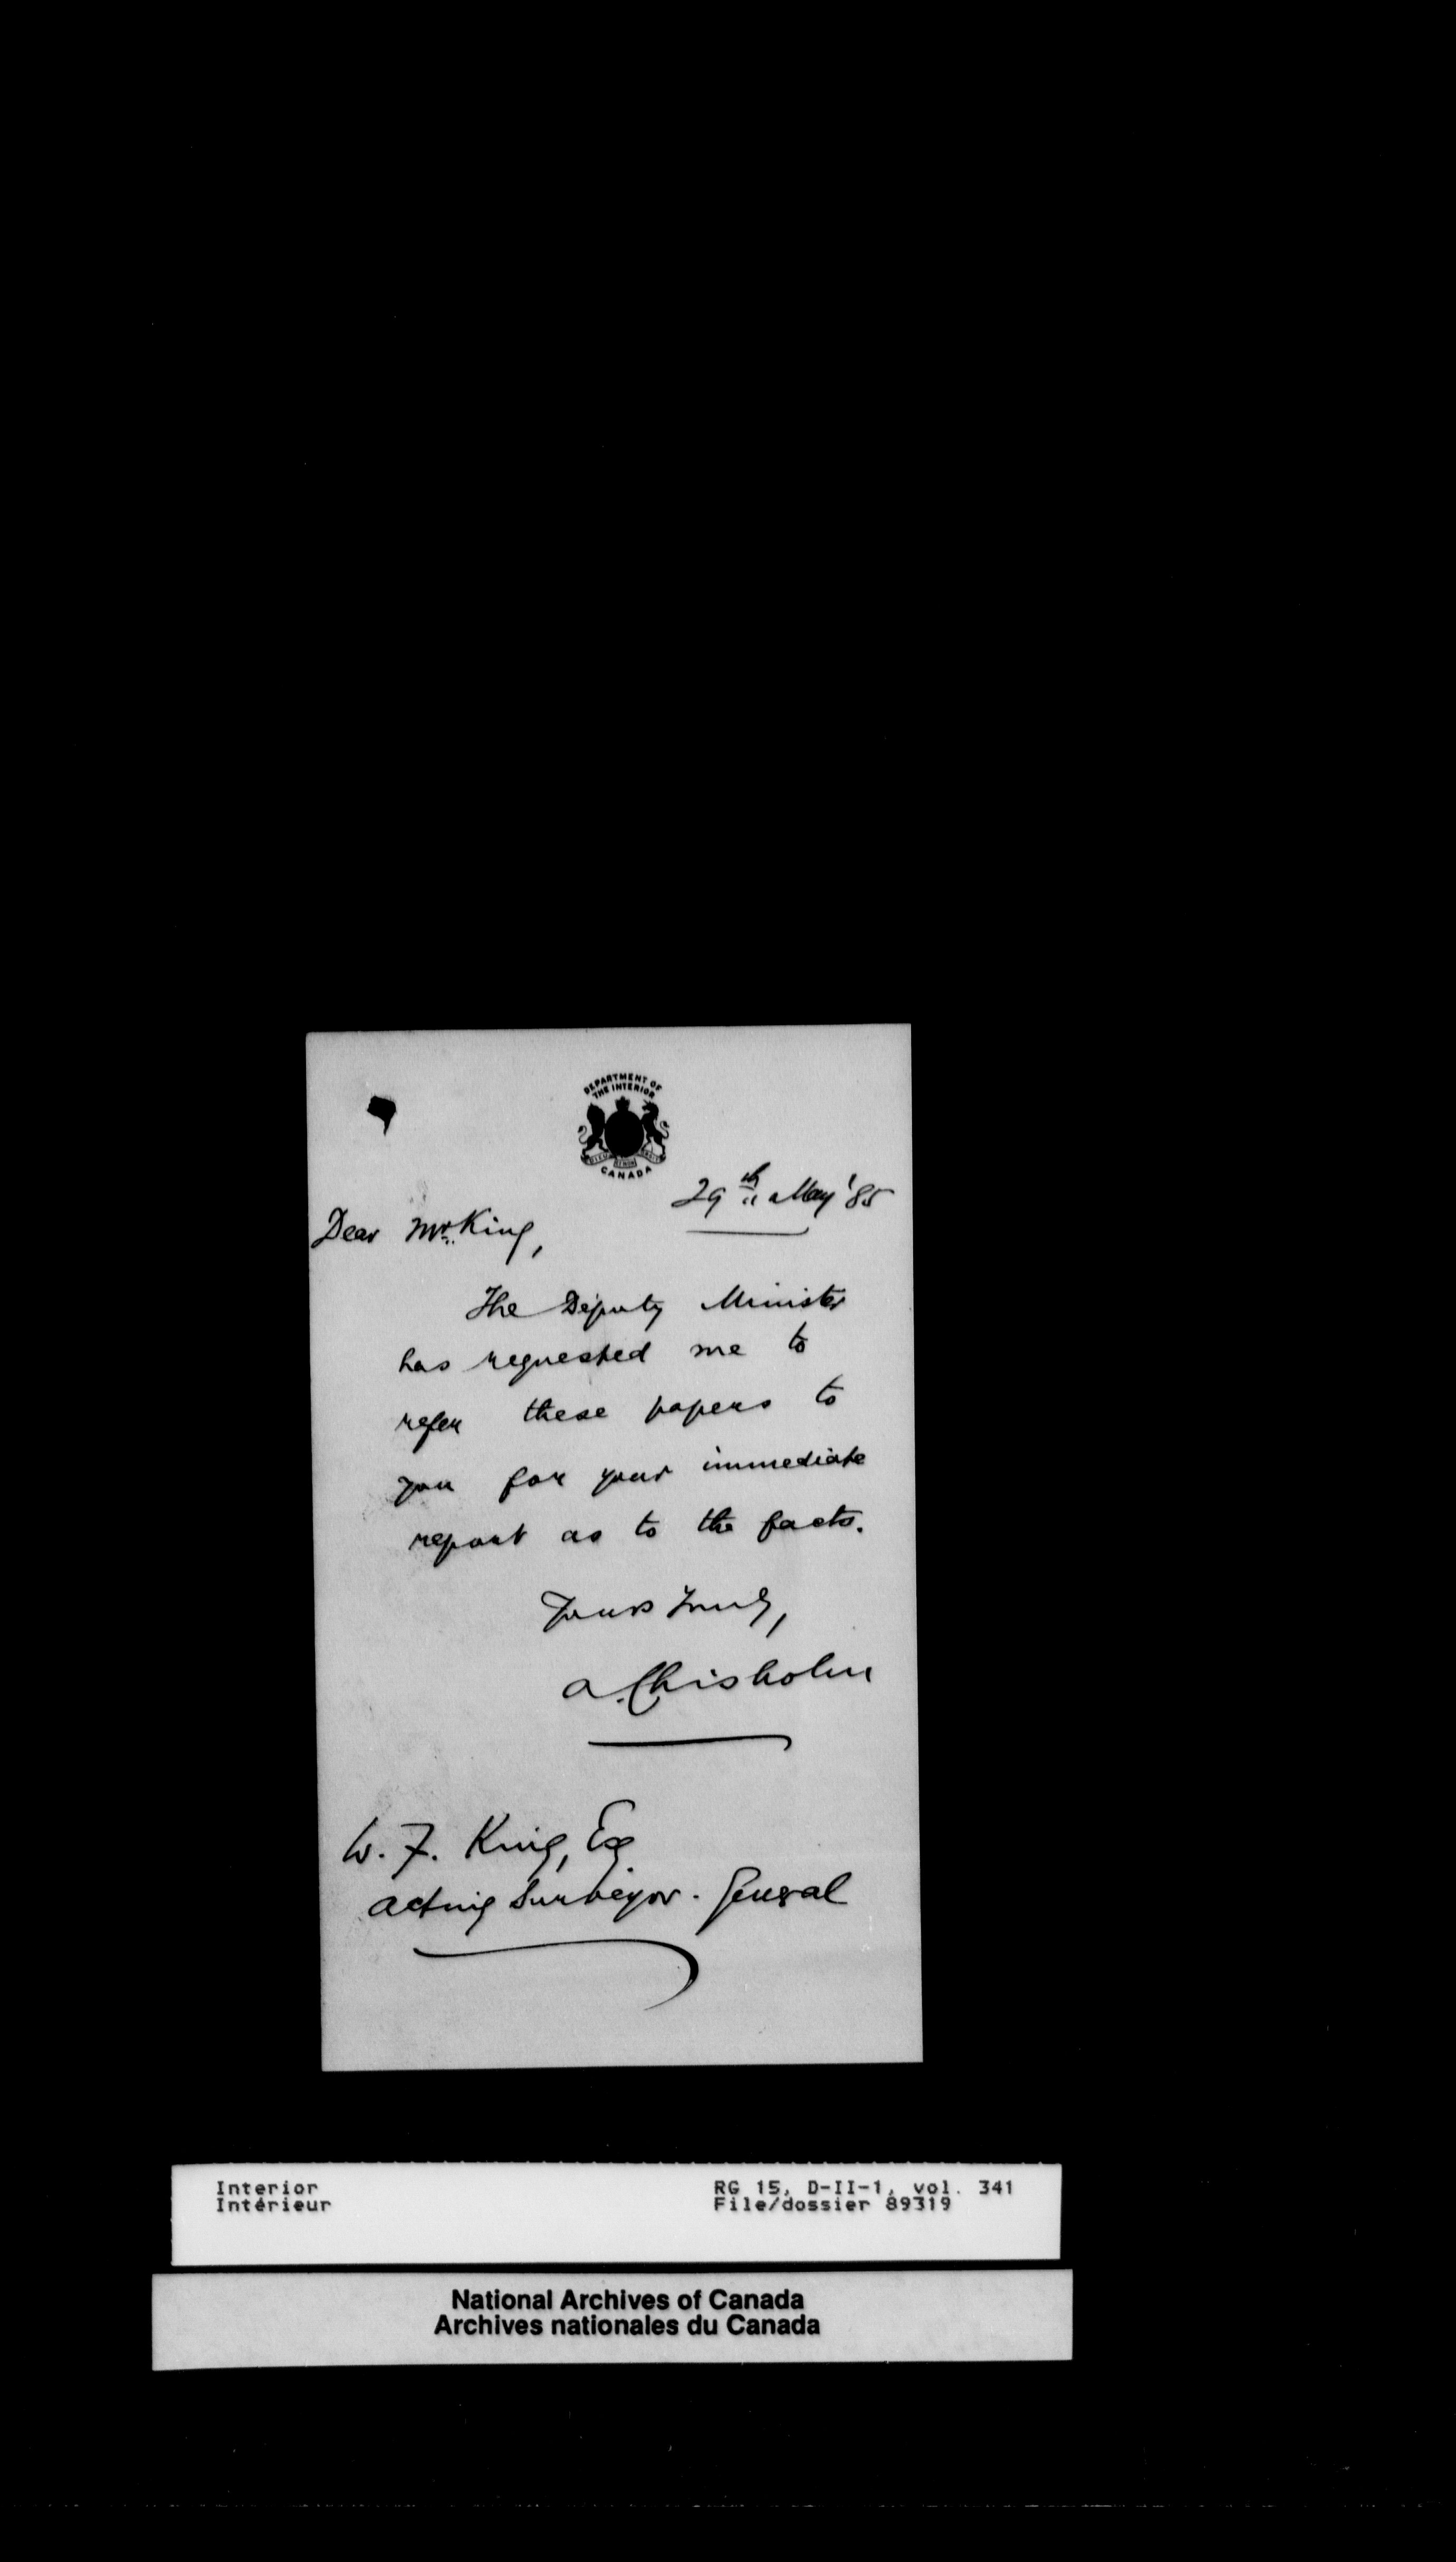 DEPARTMENT OF
THE INTERIOR
CANADA
29th May '85
Dear Mr. King,
The Deputy Minister
has requested me to
refer these papers to
you for your immediate
report as to the facts.
Yours truly,
A. Chisholm
W. F. King, Esq.
Acting Surveyor-General
Interior
Intérieur
RG 15, D-II-1, vol. 341
File/dossier 89319
National Archives of Canada
Archives nationales du Canada